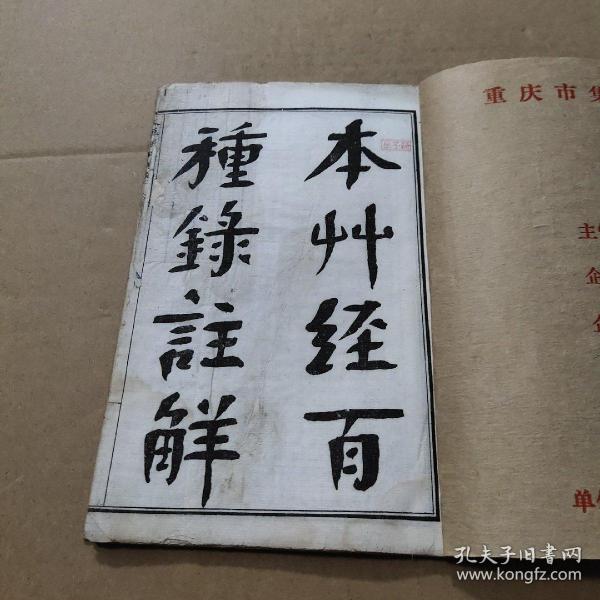 本艸經百
種錄註解
重庆市集
主
企
单
孔夫子旧书网
www.kongfz.com